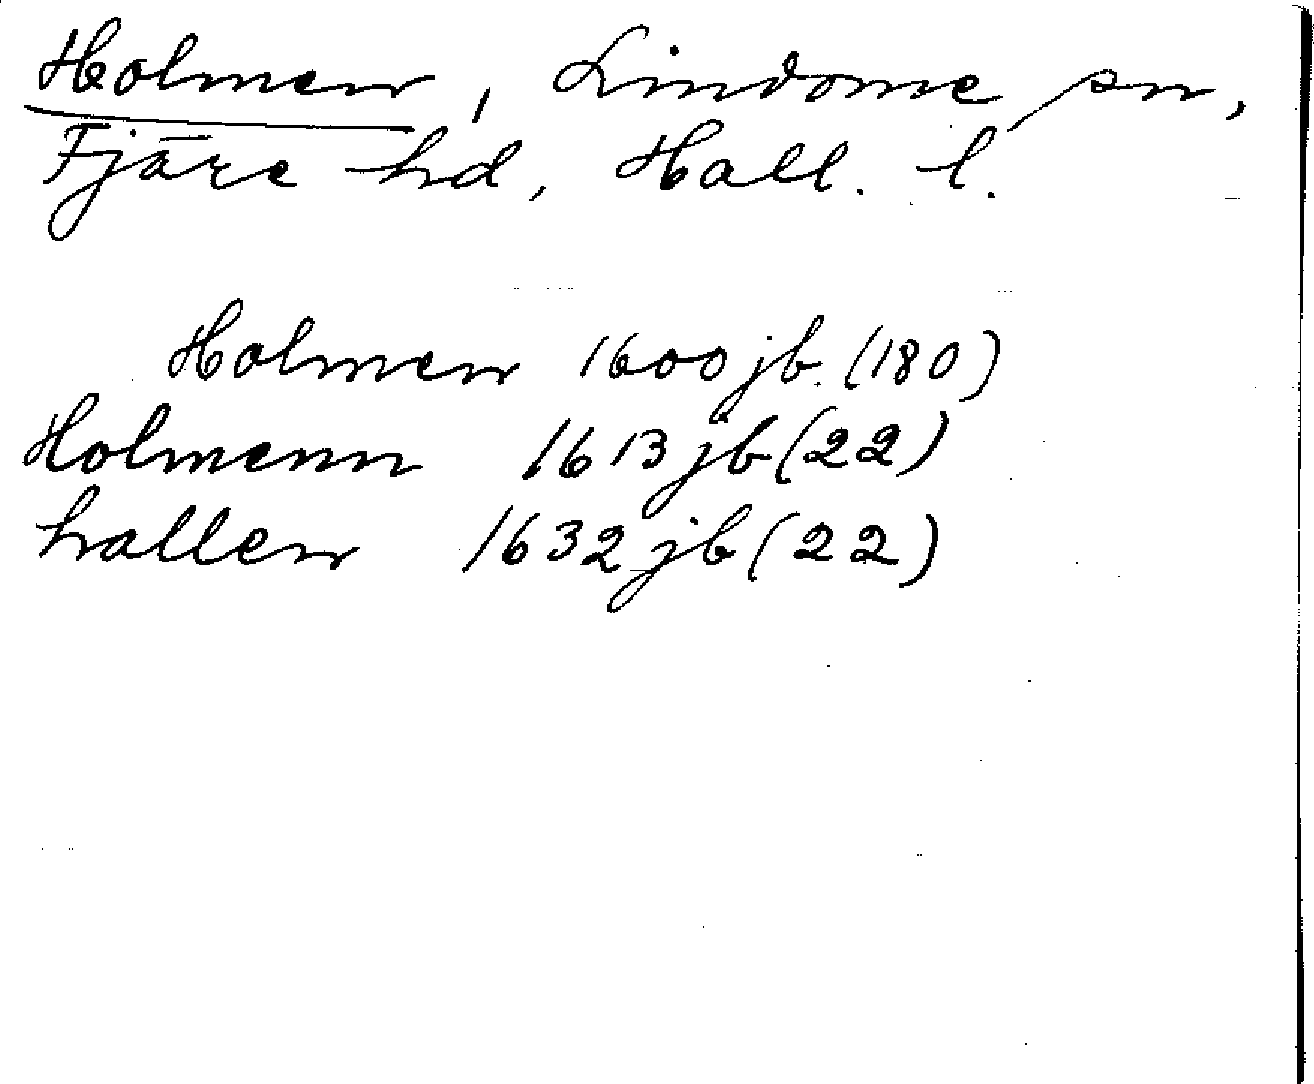 Holmen, Lindome sn,
Fjäre hd, Hall. l.
Holmen 1600 jb. (180)
Holmenn 1613 jb (22)
hollen 1632 jb (22)